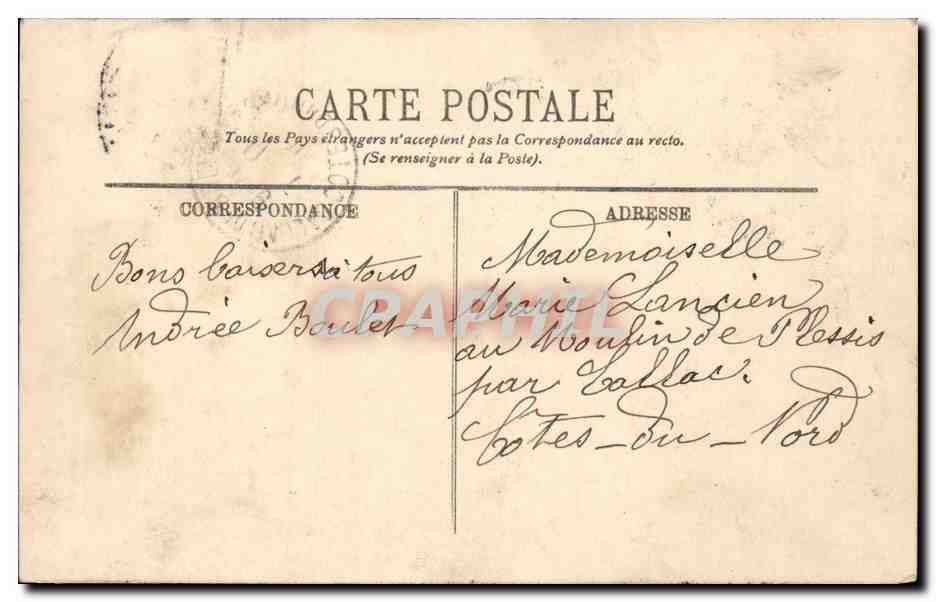 CARTE POSTALE
Tous les Pays étrangers n'acceptent pas la Correspondance au recto.
(Se renseigner à la Poste).
CORRESPONDANCE
Bons baisers à tous
Andrée Boulet
ADRESSE
Mademoiselle
Marie Lancien
au Moulin de Plessis
par Callac.
Côtes-du-Nord
CPAPHIL